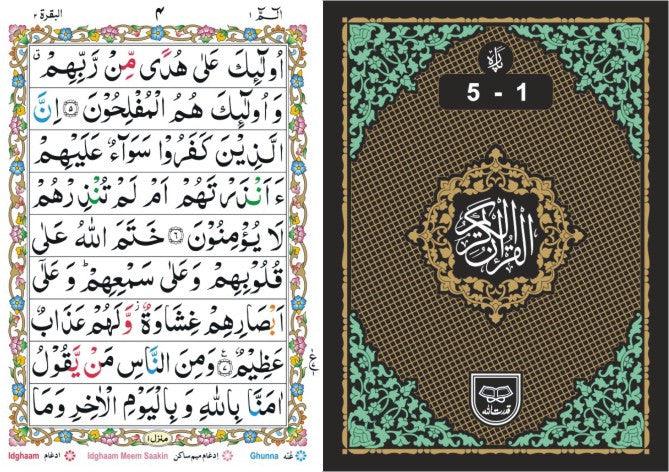 البقرة ٢
۴
الٓمّٓ ١
اُولٰٓئِكَ عَلٰى هُدًى مِّنْ رَّبِّهِمْ ۙ
وَ اُولٰٓئِكَ هُمُ الْمُفْلِحُوْنَ ﴿۵﴾ اِنَّ
الَّذِيْنَ كَفَرُوْا سَوَآءٌ عَلَيْهِمْ
ءَاَنْذَرْتَهُمْ اَمْ لَمْ تُنْذِرْهُمْ
لَا يُؤْمِنُوْنَ ﴿۶﴾ خَتَمَ اللّٰهُ عَلٰى
قُلُوْبِهِمْ وَعَلٰى سَمْعِهِمْ ؕ وَ عَلٰٓى
اَبْصَارِهِمْ غِشَاوَةٌ ۫ وَّلَهُمْ عَذَابٌ
عَظِيْمٌ ﴿۷﴾ وَمِنَ النَّاسِ مَنْ يَّقُوْلُ
اٰمَنَّا بِاللّٰهِ وَ بِالْيَوْمِ الْاٰخِرِ وَمَا
منزل ١
Idghaam ادغام Idghaam Meem Saakin ادغام ميم ساكن Ghunna غنّه
پاره
5 - 1
القرآن الكريم
قدرت الله